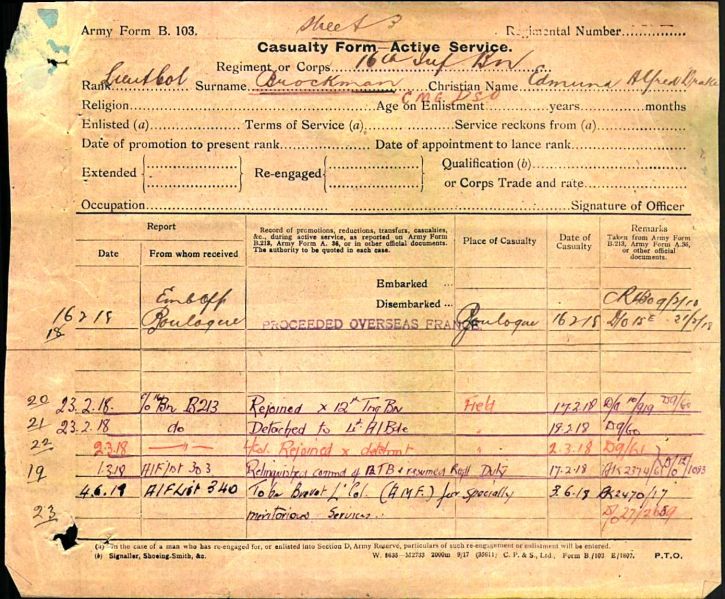 Army Form B. 103.
Sheet 3
Regimental Number
Casualty Form—Active Service.
Regiment or Corps 16th Inf Bn
Rank Lieut Col Surname Brockman Christian Name Edmund Alfred Drake
C.M.G. DSO
Religion Age on Enlistment years months
Enlisted (a) Terms of Service (a) Service reckons from (a)
Date of promotion to present rank Date of appointment to lance rank
Extended Re-engaged Qualification (b)
or Corps Trade and rate
Occupation Signature of Officer
Report
Date From whom received
Record of promotions, reductions, transfers, casualties, &c., during active service, as reported on Army Form B.213, Army Form A. 36, or in other official documents. The authority to be quoted in each case.
Place of Casualty
Date of Casualty
Remarks
Taken from Army Form B.213, Army Form A.36, or other official documents.
Embarked
Disembarked
16 2 18 Emb Off Boulogne PROCEEDED OVERSEAS FRANCE Boulogne 16 2 18
18
20 23.2.18. Bn B213 Rejoined x 12th Trg Bn Field 17.2.18
21 23.2.18 do Detached to 4th AI Bde " 18.2.18 D9/60
22 2.3.18 Rejoined x detchmt " 2.3.18 D9/61
19 1.3.18 AIF List 303 Relinquishes command of 12 TB & resumes Regtl Duty 17.2.18
4.6.19 AIF List 340 To be Brevet Lt Col. (A.M.F.) for specially 3.6.18
23 meritorious Services.
(a) In the case of a man who has re-engaged for, or enlisted into Section D, Army Reserve, particulars of such re-engagement or enlistment will be entered.
(b) Signaller, Shoeing-Smith, &c. W. 8635—M2733 2000m 9/17 (35611) C. P. & S., Ltd., Form B./103 E/1607. P.T.O.